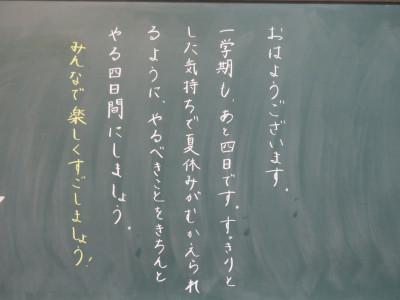 おはようございます。
一学期も、あと四日です。すっきりと
した気持ちで夏休みがむかえられ
るように、やるべきことをきちんと
やる四日間にしましょう。
みんなで楽しくすごしましょう!